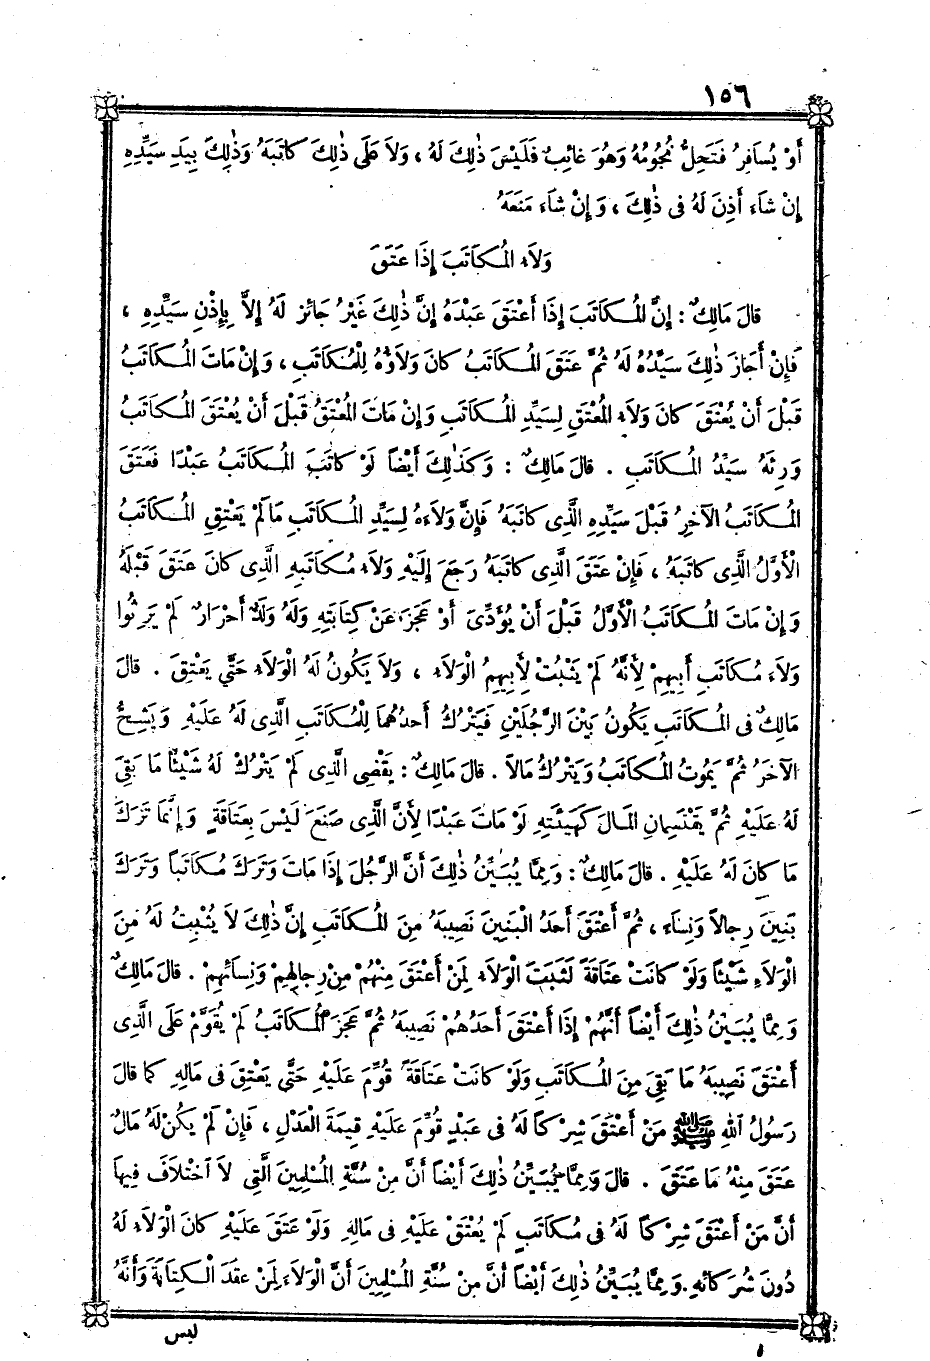 ١٥٦
أَوْ يُسَافِرُ فَتَحِلُّ نُجُومُهُ وَهُوَ غَائِبٌ فَلَيْسَ ذٰلِكَ لَهُ ، وَلَا عَلَى ذٰلِكَ كَاتَبَهُ وَذٰلِكَ بِيَدِ سَيِّدِهِ
إِنْ شَاءَ أَذِنَ لَهُ فِى ذٰلِكَ ، وَإِنْ شَاءَ مَنَعَهُ
وَلَاءُ الْمُكَاتَبِ إِذَا عَتَقَ
قَالَ مَالِكٌ : إِنَّ الْمُكَاتَبَ إِذَا أَعْتَقَ عَبْدَهُ إِنَّ ذٰلِكَ غَيْرُ جَائِزٍ لَهُ إِلَّا بِإِذْنِ سَيِّدِهِ ،
فَإِنْ أَجَازَ ذٰلِكَ سَيِّدُهُ لَهُ ثُمَّ عَتَقَ الْمُكَاتَبُ كَانَ وَلَاؤُهُ لِلْمُكَاتَبِ ، وَإِنْ مَاتَ الْمُكَاتَبُ
قَبْلَ أَنْ يُعْتَقَ كَانَ وَلَاءُ الْمُعْتَقِ لِسَيِّدِ الْمُكَاتَبِ وَإِنْ مَاتَ الْمُعْتَقُ قَبْلَ أَنْ يُعْتَقَ الْمُكَاتَبُ
وَرِثَهُ سَيِّدُ الْمُكَاتَبِ . قَالَ مَالِكٌ : وَكَذٰلِكَ أَيْضًا لَوْ كَاتَبَ الْمُكَاتَبُ عَبْدًا فَعَتَقَ
الْمُكَاتَبُ الْآخِرُ قَبْلَ سَيِّدِهِ الَّذِى كَاتَبَهُ فَإِنَّ وَلَاءَهُ لِسَيِّدِ الْمُكَاتَبِ مَا لَمْ يَعْتِقِ الْمُكَاتَبُ
الْأَوَّلُ الَّذِى كَاتَبَهُ ، فَإِنْ عَتَقَ الَّذِى كَاتَبَهُ رَجَعَ إِلَيْهِ وَلَاءُ مُكَاتَبِهِ الَّذِى كَانَ عَتَقَ قَبْلَهُ
وَإِنْ مَاتَ الْمُكَاتَبُ الْأَوَّلُ قَبْلَ أَنْ يُؤَدِّىَ أَوْ عَجَزَ عَنْ كِتَابَتِهِ وَلَهُ وَلَدٌ أَحْرَارٌ لَمْ يَرِثُوا
وَلَاءَ مُكَاتَبِ أَبِيهِمْ لِأَنَّهُ لَمْ يَثْبُتْ لِأَبِيهِمُ الْوَلَاءُ ، وَلَا يَكُونُ لَهُ الْوَلَاءُ حَتَّى يَعْتِقَ . قَالَ
مَالِكٌ فِى الْمُكَاتَبِ يَكُونُ بَيْنَ الرَّجُلَيْنِ فَيَتْرُكُ أَحَدُهُمَا لِلْمُكَاتَبِ الَّذِى لَهُ عَلَيْهِ وَيَشِحُّ
الْآخَرُ ثُمَّ يَمُوتُ الْمُكَاتَبُ وَيَتْرُكُ مَالًا . قَالَ مَالِكٌ : يَقْضِى الَّذِى لَمْ يَتْرُكْ لَهُ شَيْئًا مَا بَقِىَ
لَهُ عَلَيْهِ ثُمَّ يَقْتَسِمَانِ الْمَالَ كَهَيْئَتِهِ لَوْ مَاتَ عَبْدًا لِأَنَّ الَّذِى صَنَعَ لَيْسَ بِعَتَاقَةٍ وَإِنَّمَا تَرَكَ
مَا كَانَ لَهُ عَلَيْهِ . قَالَ مَالِكٌ : وَمِمَّا يُبَيِّنُ ذٰلِكَ أَنَّ الرَّجُلَ إِذَا مَاتَ وَتَرَكَ مُكَاتَبًا وَتَرَكَ
بَنِينَ رِجَالًا وَنِسَاءً ، ثُمَّ أَعْتَقَ أَحَدُ الْبَنِينَ نَصِيبَهُ مِنَ الْمُكَاتَبِ إِنَّ ذٰلِكَ لَا يُثْبِتُ لَهُ مِنَ
الْوَلَاءِ شَيْئًا وَلَوْ كَانَتْ عَتَاقَةً لَثَبَتَ الْوَلَاءُ لِمَنْ أَعْتَقَ مِنْهُمْ مِنْ رِجَالِهِمْ وَنِسَائِهِمْ . قَالَ مَالِكٌ
وَمِمَّا يُبَيِّنُ ذٰلِكَ أَيْضًا أَنَّهُمْ إِذَا أَعْتَقَ أَحَدُهُمْ نَصِيبَهُ ثُمَّ عَجَزَ الْمُكَاتَبُ لَمْ يُقَوَّمْ عَلَى الَّذِى
أَعْتَقَ نَصِيبَهُ مَا بَقِىَ مِنَ الْمُكَاتَبِ وَلَوْ كَانَتْ عَتَاقَةً قُوِّمَ عَلَيْهِ حَتَّى يَعْتِقَ فِى مَالِهِ كَمَا قَالَ
رَسُولُ اللهِ ﷺ مَنْ أَعْتَقَ شِرْكًا لَهُ فِى عَبْدٍ قُوِّمَ عَلَيْهِ قِيمَةَ الْعَدْلِ ، فَإِنْ لَمْ يَكُنْ لَهُ مَالٌ
عَتَقَ مِنْهُ مَا عَتَقَ . قَالَ وَمِمَّا يُبَيِّنُ ذٰلِكَ أَيْضًا أَنَّ مِنْ سُنَّةِ الْمُسْلِمِينَ الَّتِى لَا اخْتِلَافَ فِيهَا
أَنَّ مَنْ أَعْتَقَ شِرْكًا لَهُ فِى مُكَاتَبٍ لَمْ يُعْتَقْ عَلَيْهِ فِى مَالِهِ وَلَوْ عَتَقَ عَلَيْهِ كَانَ الْوَلَاءُ لَهُ
دُونَ شُرَكَائِهِ . وَمِمَّا يُبَيِّنُ ذٰلِكَ أَيْضًا أَنَّ مِنْ سُنَّةِ الْمُسْلِمِينَ أَنَّ الْوَلَاءَ لِمَنْ عَقَدَ الْكِتَابَةَ وَأَنَّهُ
ليس